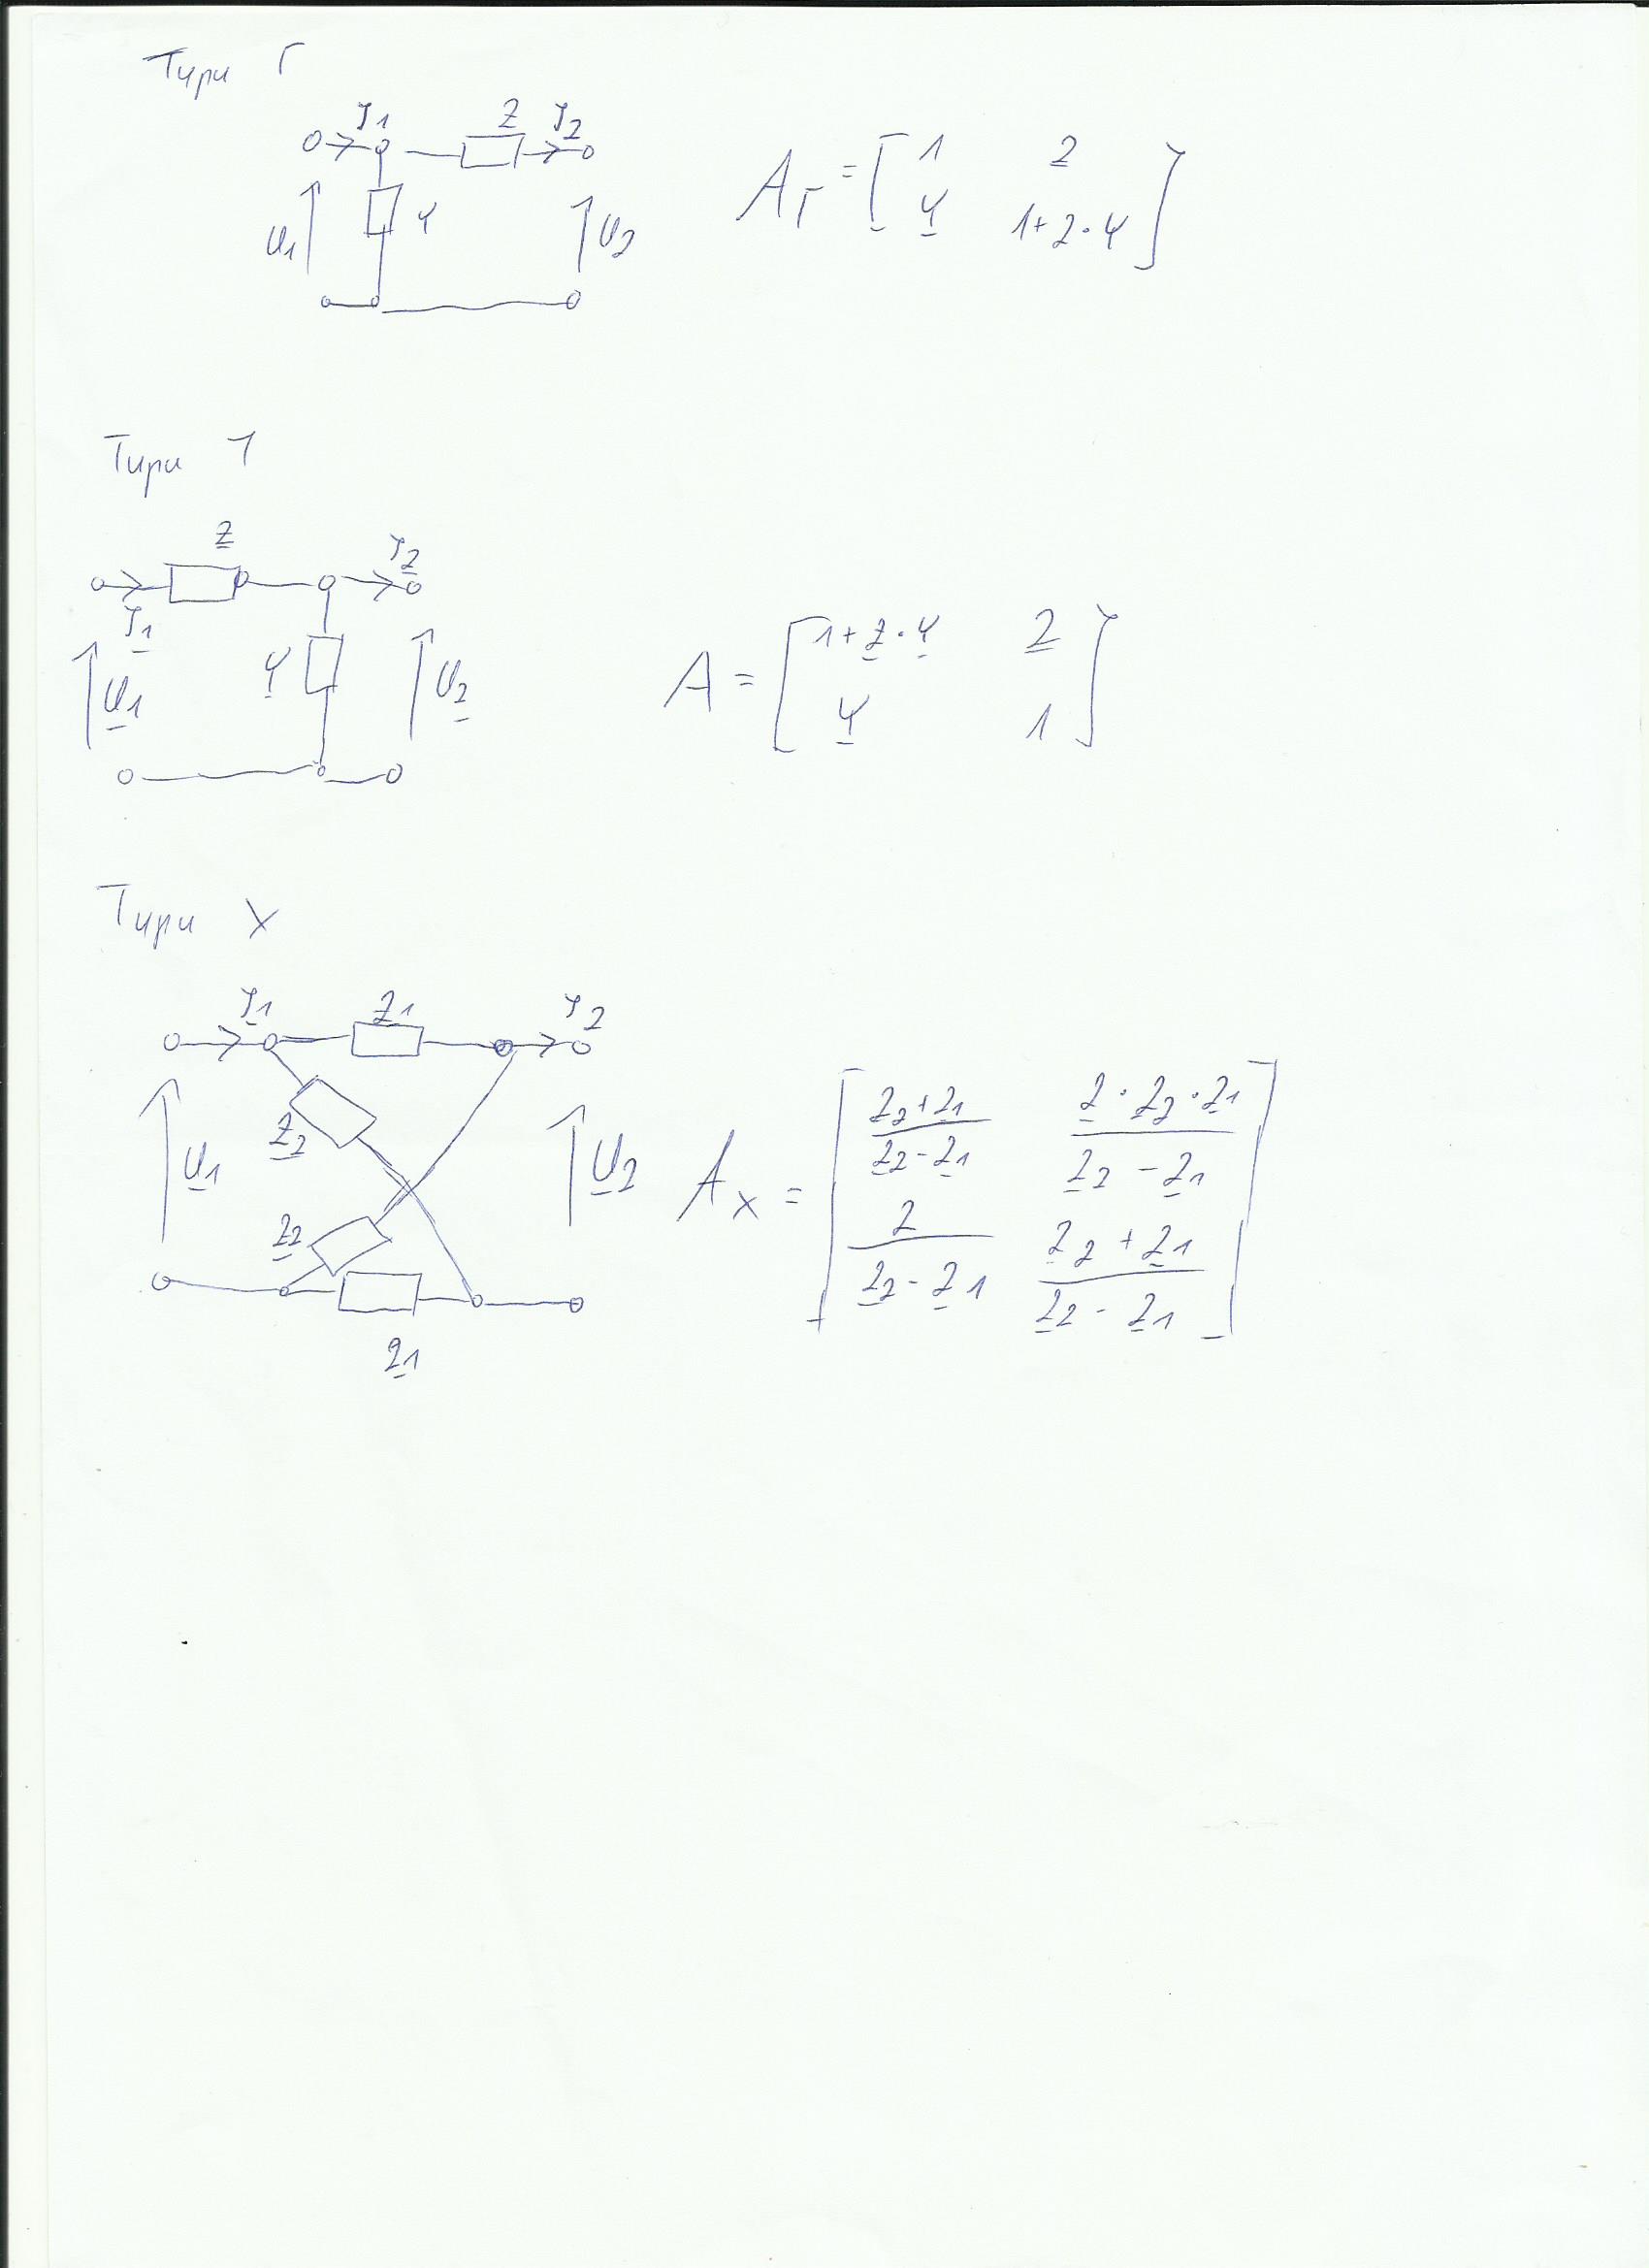 Типи Г
I1 Z I2
U1 Y U2
A_Г = [ 1 Z
Y 1+Z·Y ]
Типи ˥
Z I2
I1
U1 Y U2
A = [ 1+Z·Y Z
Y 1 ]
Типи X
I1 Z1 I2
Z2
U1 U2
Z2
Z1
A_X = [ (Z2+Z1)/(Z2-Z1) (2·Z2·Z1)/(Z2-Z1)
2/(Z2-Z1) (Z2+Z1)/(Z2-Z1) ]